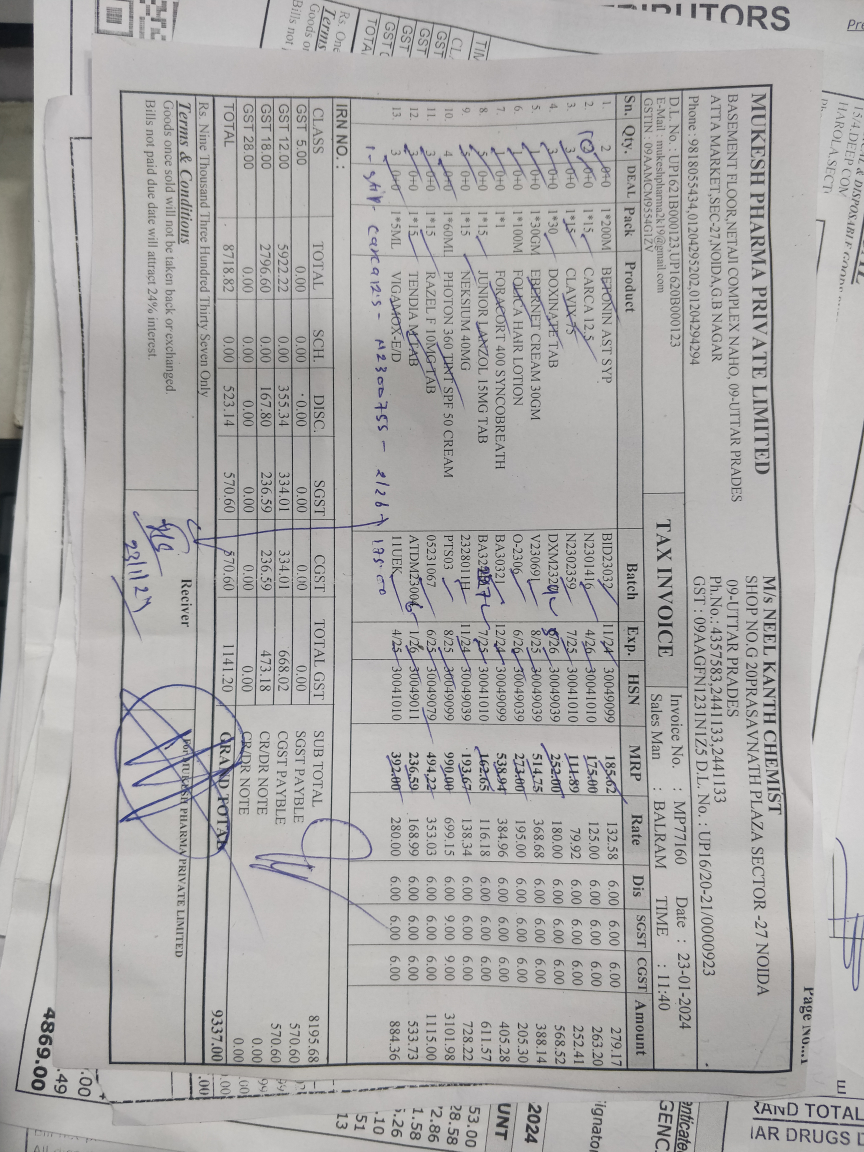 MUKESH PHARMA PRIVATE LIMITED
BASEMENT FLOOR,NETAJI COMPLEX NAHO, 09-UTTAR PRADES
ATTA MARKET,SEC-27,NOIDA,G.B NAGAR
Phone : 9818055434,01204295202,01204294294
D.L. No. : UP1621B000123,UP1620B000123
E-Mail : mukeshpharma2k19@gmail.com
GSTIN : 09AAMCM9554G1ZV
Page No...1
M/s NEEL KANTH CHEMIST
SHOP NO.G 20PRASAVNATH PLAZA SECTOR -27 NOIDA
09-UTTAR PRADES
Ph.No.: 4357583,2441133,2441133
GST : 09AAGFN1231N1Z5 D.L. No. : UP16/20-21/0000923
TAX INVOICE
Invoice No. : MP77160 Date : 23-01-2024
Sales Man : BALRAM TIME : 11:40
Sn. Qty. DEAL Pack Product Batch Exp. HSN MRP Rate Dis SGST CGST Amount
1. 2 0+0 1*200M BETONIN AST SYP BID23032 11/24 30049099 185.62 132.58 6.00 6.00 6.00 279.17
2. 10 0+0 1*15 CARCA 12.5 N2301416 4/26 30041010 175.00 125.00 6.00 6.00 6.00 263.20
3. 3 0+0 1*15 CLAVIX-75 N2302359 7/25 30041010 111.89 79.92 6.00 6.00 6.00 252.41
4. 3 0+0 1*30 DOXINATE TAB 30049039 252.00 180.00 6.00 6.00 6.00 568.52
5. 1 0+0 1*30GM EBERNET CREAM 30GM V23069 8/25 30049039 514.75 368.68 6.00 6.00 6.00 388.14
6. 1 0+0 1*100M FOLICA HAIR LOTION O-2306 6/26 30049039 273.00 195.00 6.00 6.00 6.00 205.30
7. 1 0+0 1*1 FORACORT 400 SYNCOBREATH BA30321 12/24 30049099 538.94 384.96 6.00 6.00 6.00 405.28
8. 5 0+0 1*15 JUNIOR LANZOL 15MG TAB 7/25 30041010 162.65 116.18 6.00 6.00 6.00 611.57
9. 5 0+0 1*15 NEKSIUM 40MG 2328011H 11/24 30049039 193.67 138.34 6.00 6.00 6.00 728.22
10. 4 0+0 1*60ML PHOTON 360 TINT SPF 50 CREAM PTS03 8/25 30049099 990.00 699.15 6.00 9.00 9.00 3101.98
11. 3 0+0 1*15 RAZEL F 10MG TAB 05231067 6/25 30049079 494.22 353.03 6.00 6.00 6.00 1115.00
12. 3 0+0 1*15 TENDIA M TAB ATDM23006 1/26 30049011 236.59 168.99 6.00 6.00 6.00 533.73
13. 3 0+0 1*5ML VIGAMOX-E/D 11UEK 4/25 30041010 392.00 280.00 6.00 6.00 6.00 884.36
carca 12.5 - N2300755 - 2/26 175.00
IRN NO. :
CLASS TOTAL SCH. DISC. SGST CGST TOTAL GST
GST 5.00 0.00 0.00 0.00 0.00 0.00 0.00
GST 12.00 5922.22 0.00 355.34 334.01 334.01 668.02
GST 18.00 2796.60 0.00 167.80 236.59 236.59 473.18
GST 28.00 0.00 0.00 0.00 0.00 0.00 0.00
TOTAL 8718.82 0.00 523.14 570.60 570.60 1141.20
SUB TOTAL 8195.68
SGST PAYBLE 570.60
CGST PAYBLE 570.60
CR/DR NOTE 0.00
CR/DR NOTE 0.00
GRAND TOTAL 9337.00
Rs. Nine Thousand Three Hundred Thirty Seven Only
Terms & Conditions
Goods once sold will not be taken back or exchanged.
Bills not paid due date will attract 24% interest.
Reciver
23/1/24
For MUKESH PHARMA PRIVATE LIMITED
4869.00
2024